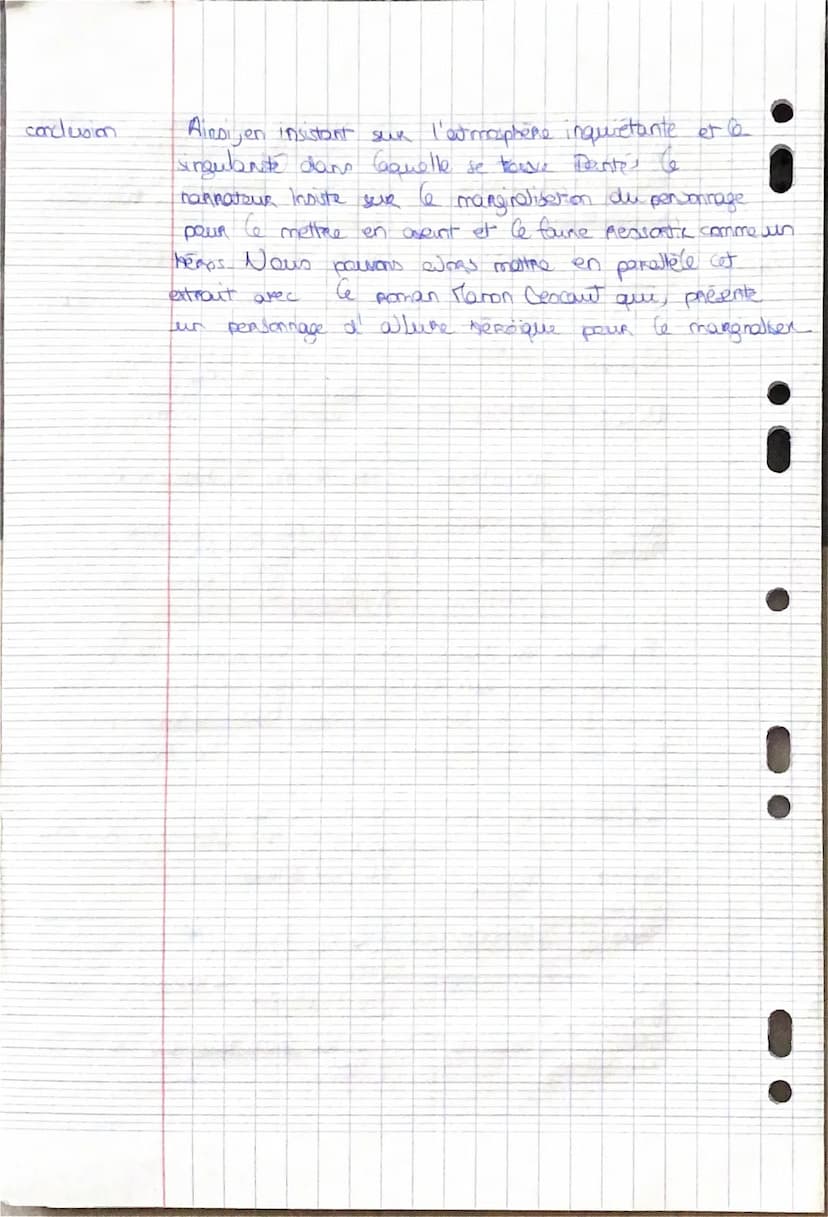 conclusion Ainsi, en insistant sur l'atmosphère inquiétante et la
singularité dans laquelle se trouve Dantès le
narrateur insiste sur la marginalisation du personnage
pour le mettre en avant et le faire ressortir comme un
héros. Nous pouvons alors mettre en parallèle cet
extrait avec le roman Manon Lescaut qui, présente
un personnage d'allure héroïque pour le marginaliser